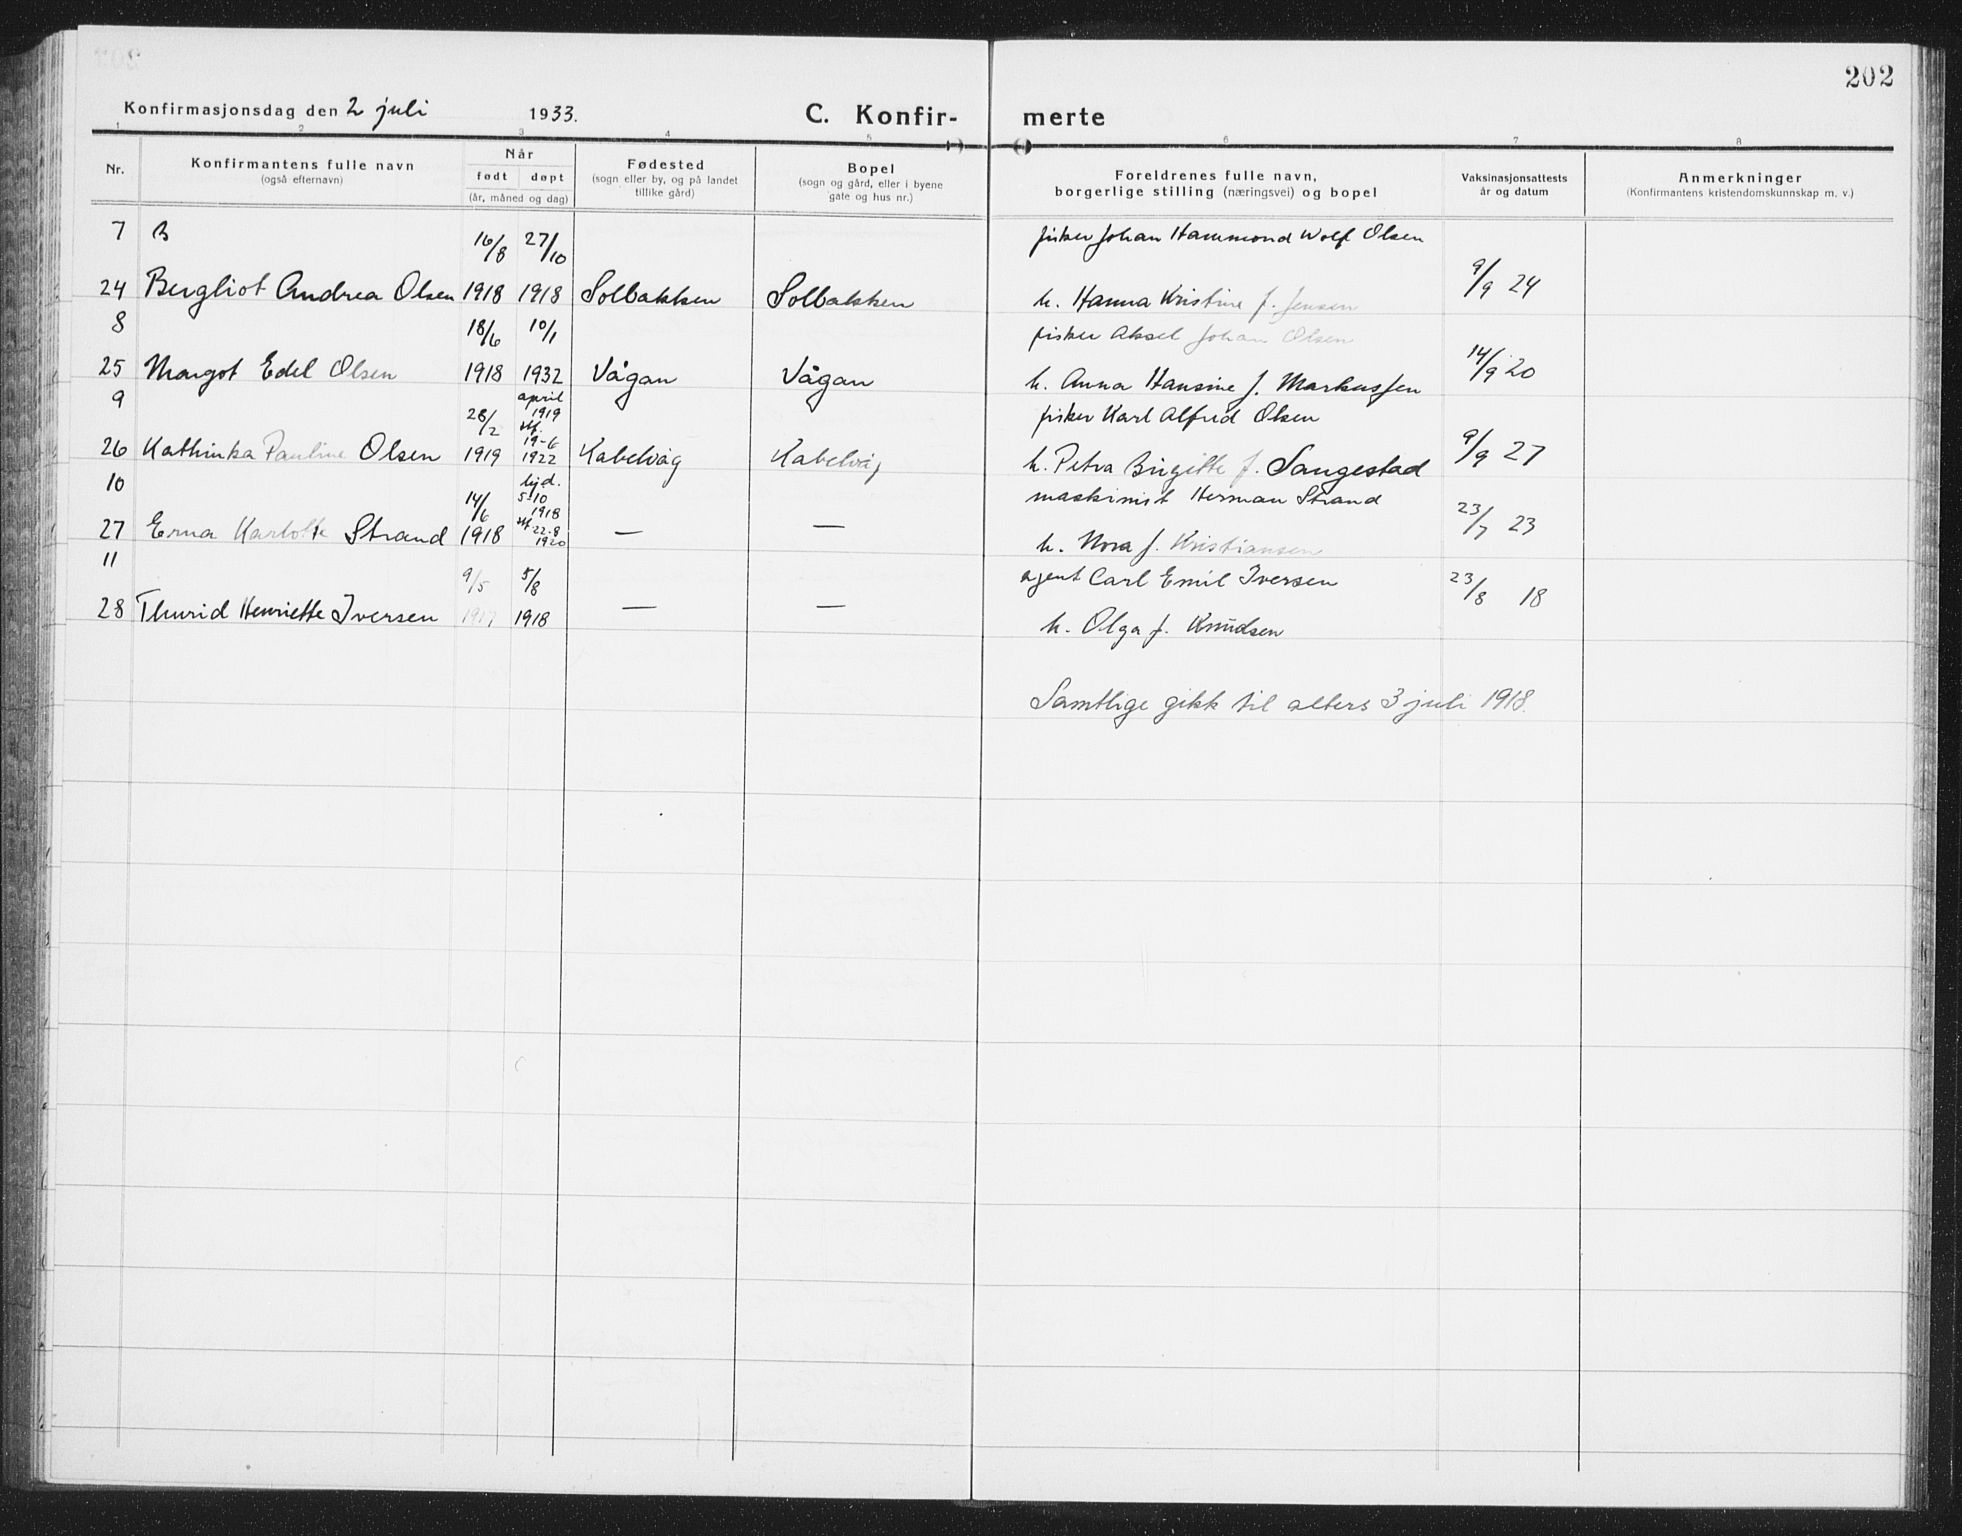 202
Konfirmasjonsdag den 2 juli 1933.
C. Konfir-
merte
1 2 3 4 5 6 7 8
Nr.
Konfirmantens fulle navn
(også efternavn)
Når
født døpt
(år, måned og dag)
Fødested
(sogn eller by, og på landet
tillike gård)
Bopel
(sogn og gård, eller i byene
gate og hus nr.)
Foreldrenes fulle navn,
borgerlige stilling (næringsvei) og bopel
Vaksinasjonsattests
år og datum
Anmerkninger
(Konfirmantens kristendomskunnskap m. v.)
7 B 16/8 27/10 fisker Johan Hammond Wolf Olsen
24 Bergliot Andrea Olsen 1918 1918 Solbakken Solbakken h. Hanna Kristine f. Jensen 9/9 24
8 18/6 10/1 fisker Aksel Johan Olsen
25 Margot Edel Olsen 1918 1932 Vågan Vågan h. Anna Hansine f. Markussen 14/9 20
9 28/2 april 1919 fisker Karl Alfred Olsen
26 Kathinka Pauline Olsen 1919 19-6 1922 Kabelvåg Kabelvåg h. Petra Birgitte f. Sangestad 9/9 27
10 14/6 hjd. 5-10 1918 maskinist Herman Strand
27 Erna Karlotte Strand 1918 22-8 1920 — — h. Nora f. Kristiansen 23/7 23
11 9/5 5/8 agent Carl Emil Iversen
28 Thurid Henriette Iversen 1917 1918 — — h. Olga f. Knudsen 23/8 18
Samtlige gikk til alters 3 juli 1918.